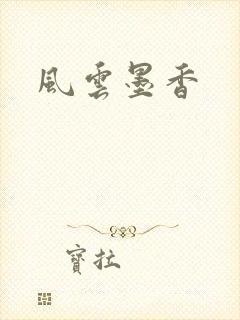 風雲墨香
寶拉